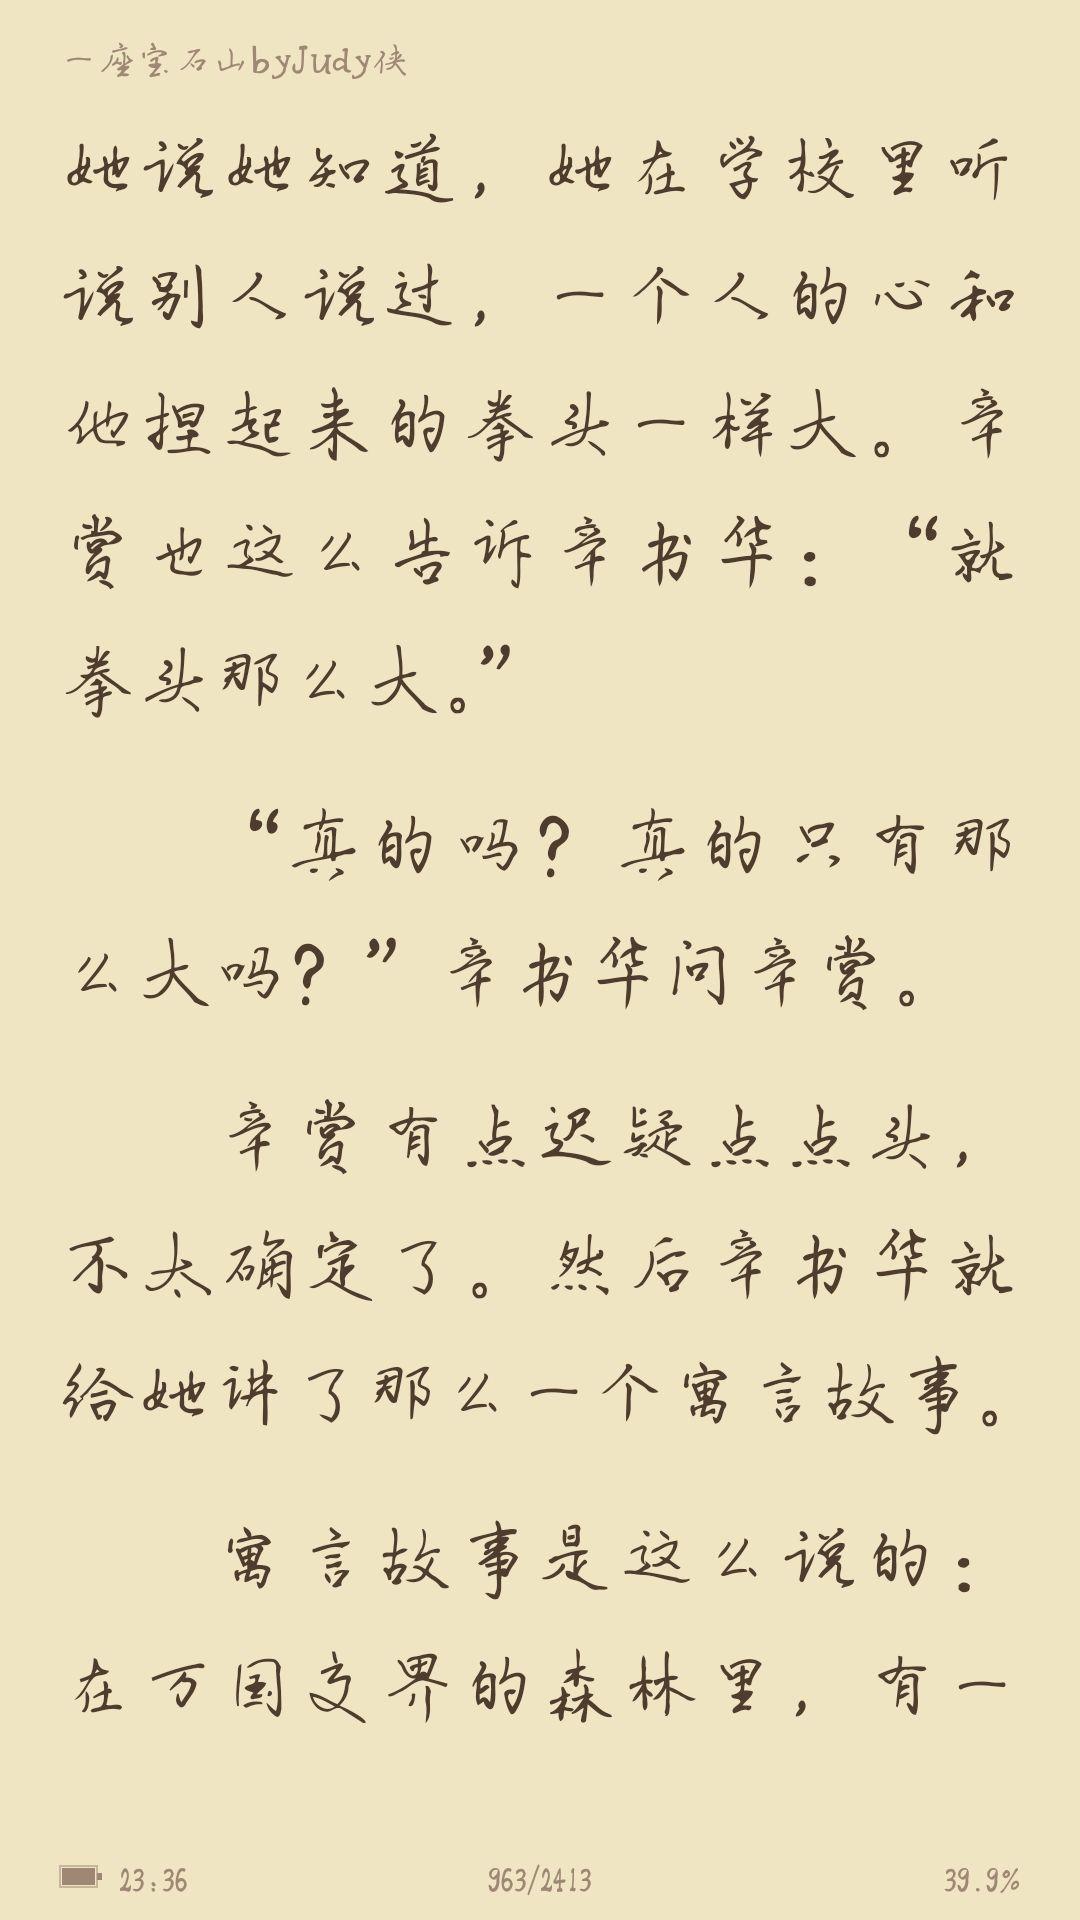 一座宝石山byJudy侠
她说她知道，她在学校里听
说别人说过，一个人的心和
他捏起来的拳头一样大。辛
赏也这么告诉辛书华：“就
拳头那么大。”
“真的吗？真的只有那
么大吗？”辛书华问辛赏。
辛赏有点迟疑点点头，
不太确定了。然后辛书华就
给她讲了那么一个寓言故事。
寓言故事是这么说的：
在万国交界的森林里，有一
23:36 963/2413 39.9%